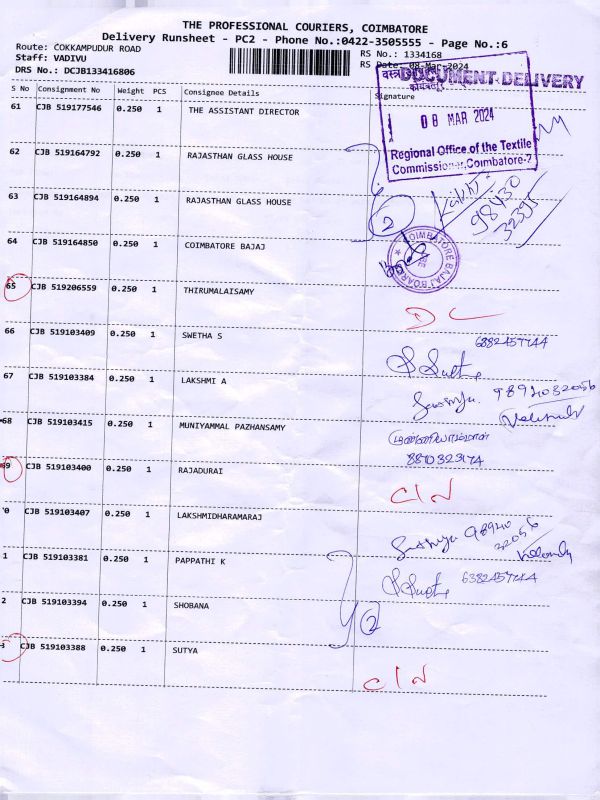 THE PROFESSIONAL COURIERS, COIMBATORE
Delivery Runsheet - PC2 - Phone No.:0422-3505555 - Page No.:6
Route: COKKAMPUDUR ROAD
RS No.: 1334168
Staff: VADIVU
RS Date: 08-Mar-2024
DRS No.: DCJB133416806
DOCUMENT DELIVERY
S No Consignment No Weight PCS Consignee Details Signature
08 MAR 2024
Regional Office of the Textile
Commissioner, Coimbatore-7
61 CJB 519177546 0.250 1 THE ASSISTANT DIRECTOR
62 CJB 519164792 0.250 1 RAJASTHAN GLASS HOUSE
63 CJB 519164894 0.250 1 RAJASTHAN GLASS HOUSE
2
98430
32395
64 CJB 519164850 0.250 1 COIMBATORE BAJAJ
COIMBATORE BAJAJ BOARD
65 CJB 519206559 0.250 1 THIRUMALAISAMY
DL
66 CJB 519103409 0.250 1 SWETHA S
6382457744
67 CJB 519103384 0.250 1 LAKSHMI A
9894032056
68 CJB 519103415 0.250 1 MUNIYAMMAL PAZHANSAMY
8870323174
69 CJB 519103400 0.250 1 RAJADURAI
C/N
0 CJB 519103407 0.250 1 LAKSHMIDHARAMARAJ
98940
32056
1 CJB 519103381 0.250 1 PAPPATHI K
6382457744
2 CJB 519103394 0.250 1 SHOBANA
2
3 CJB 519103388 0.250 1 SUTYA
C/N